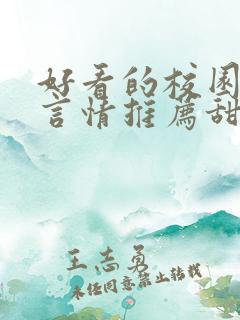 好看的校园
言情推荐甜
王志勇
未经同意禁止转载